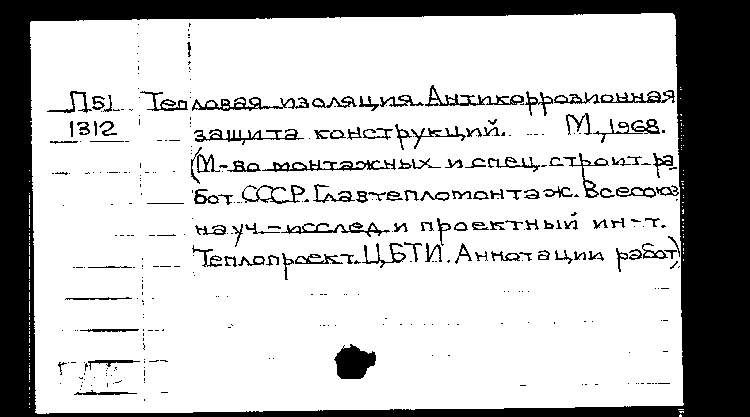 П51 Тепловая изоляция. Антикоррозионная
1312 защита конструкций. М., 1968.
(М-во монтажных и спец. строит. ра
бот СССР. Главтепломонтаж. Всесоюз.
науч.-исслед. и проектный ин-т.
Теплопроект. ЦБТИ. Аннотации работ)